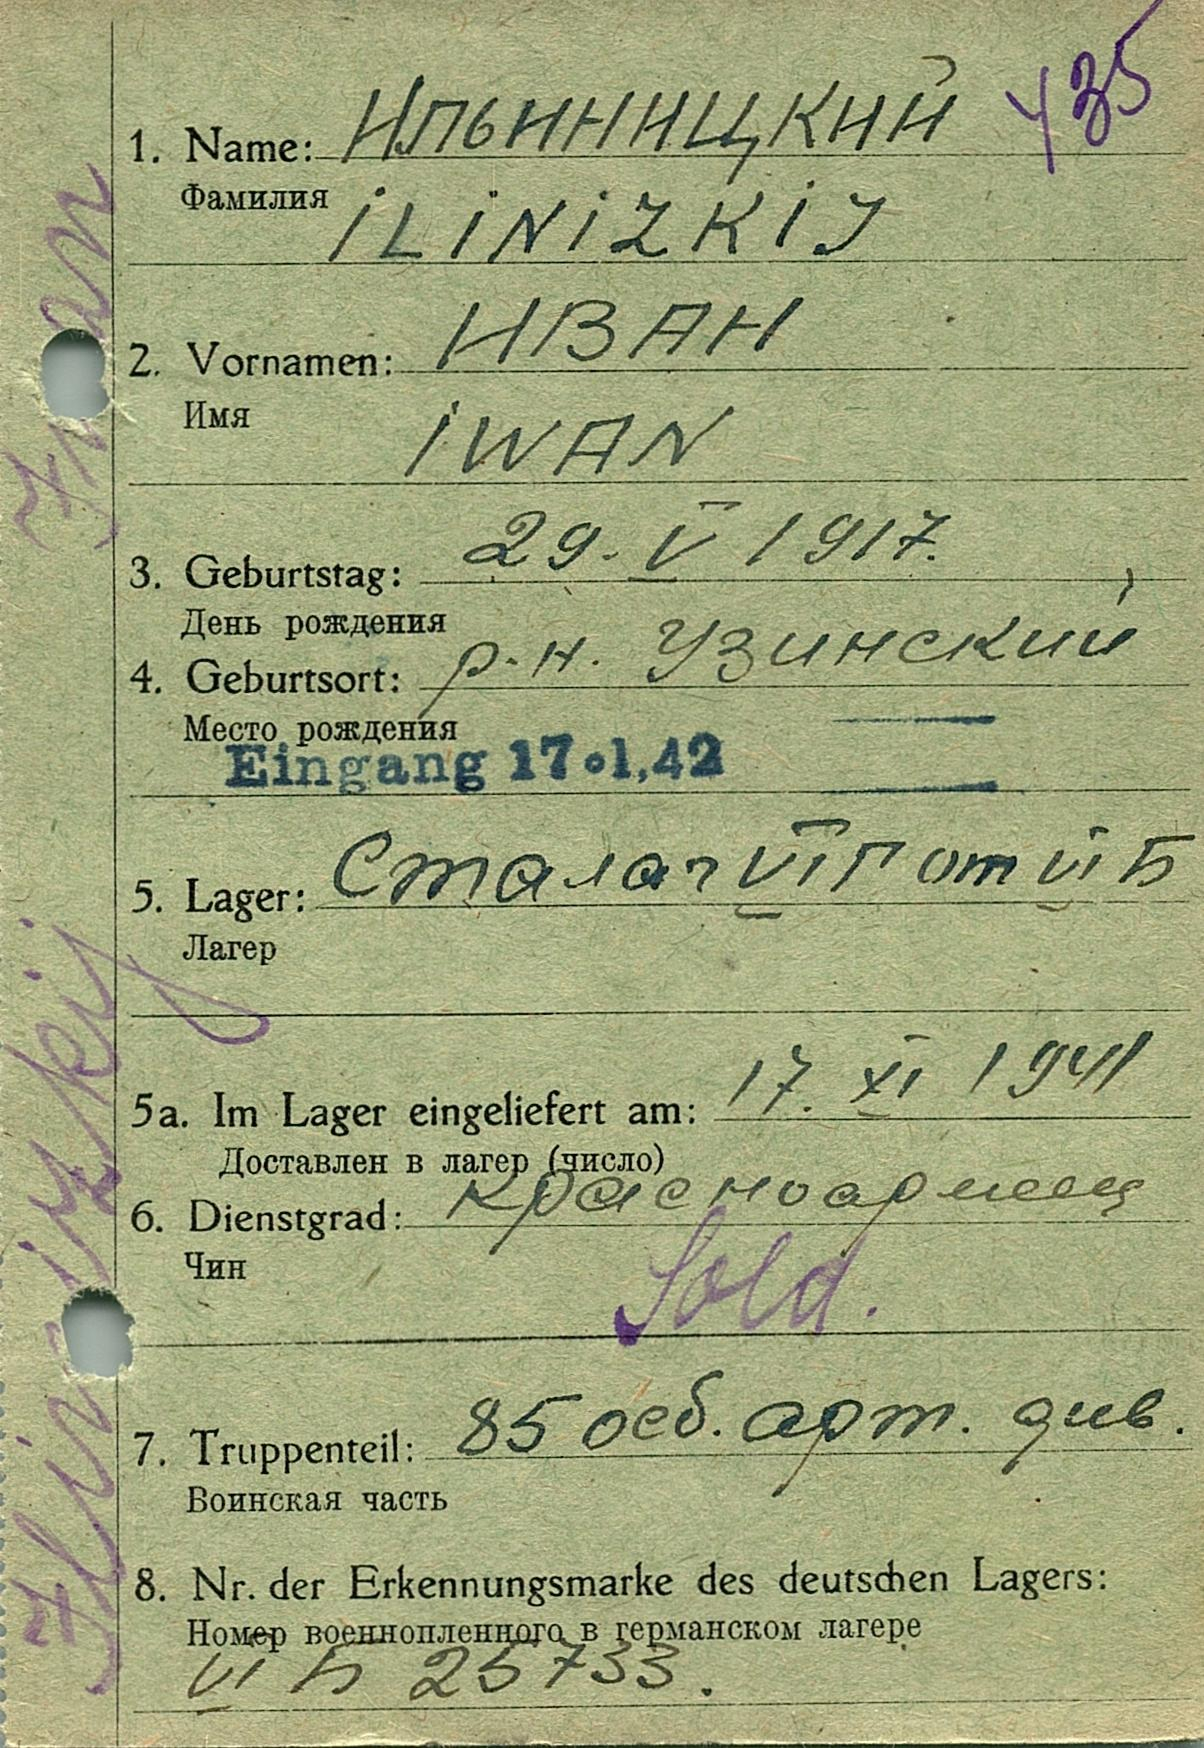 435
1. Name: Ильинницкий
Фамилия
iLiNiZKiJ
2. Vornamen: ИВАН
Имя
iWAN
3. Geburtstag: 29. V 1917.
День рождения
4. Geburtsort: р-н. Узинский
Место рождения
Eingang 17.1.42
5. Lager: Сталаг VI Г от VI Б
Лагер
5a. Im Lager eingeliefert am: 17. XI 1941
Доставлен в лагер (число)
6. Dienstgrad: красноармеец
Чин
Sold.
7. Truppenteil: 85 осб. арт. див.
Воинская часть
8. Nr. der Erkennungsmarke des deutschen Lagers:
Номер военнопленного в германском лагере
VI Б 25733.
Ilinizkij Iwan